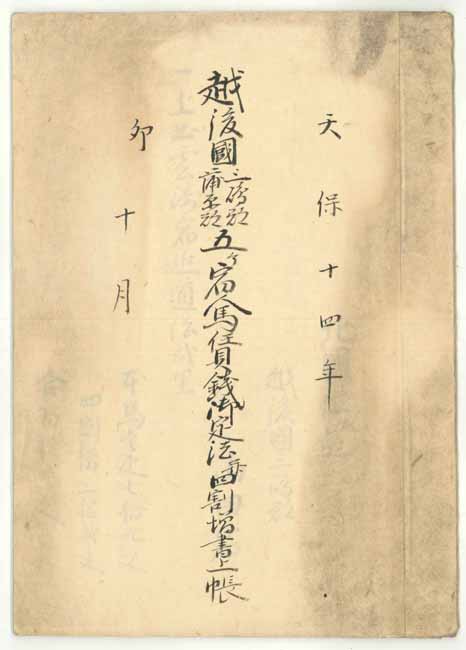 天保十四年
越後國三嶋郡蒲原郡五ヶ宿人馬賃錢御定法并四割増書上帳
卯十月